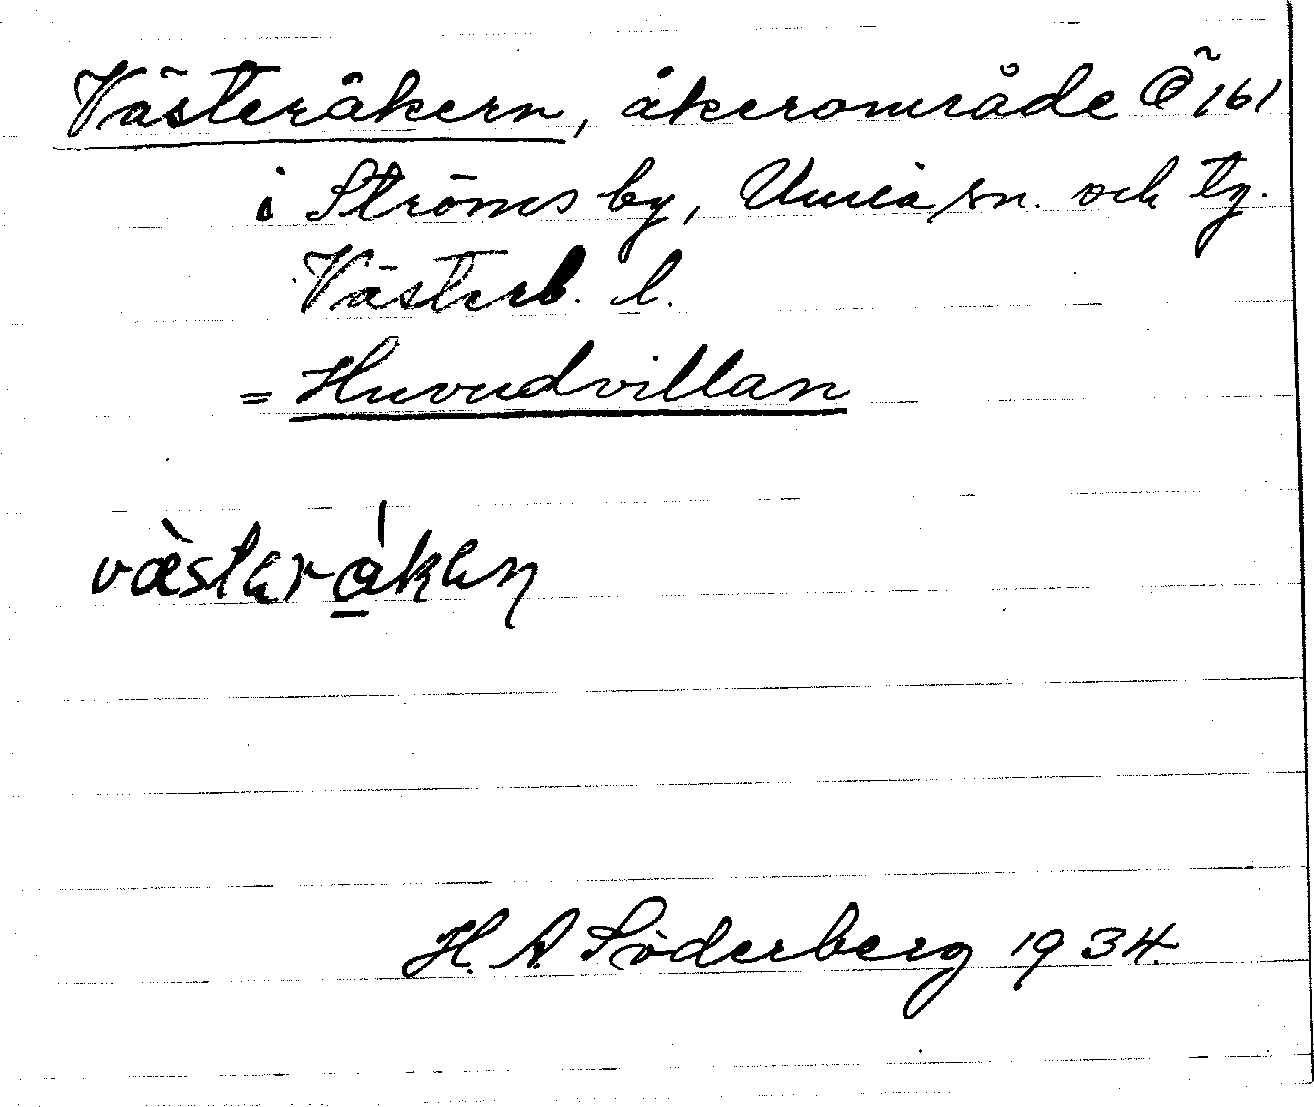 Västeråkern, åkerområde Ö 161
i Ströms by, Umeå sn. och tg.
Västerb. l.
= Huvudvillan
væ̀stɛrákɛn
H. A. Söderberg 1934.